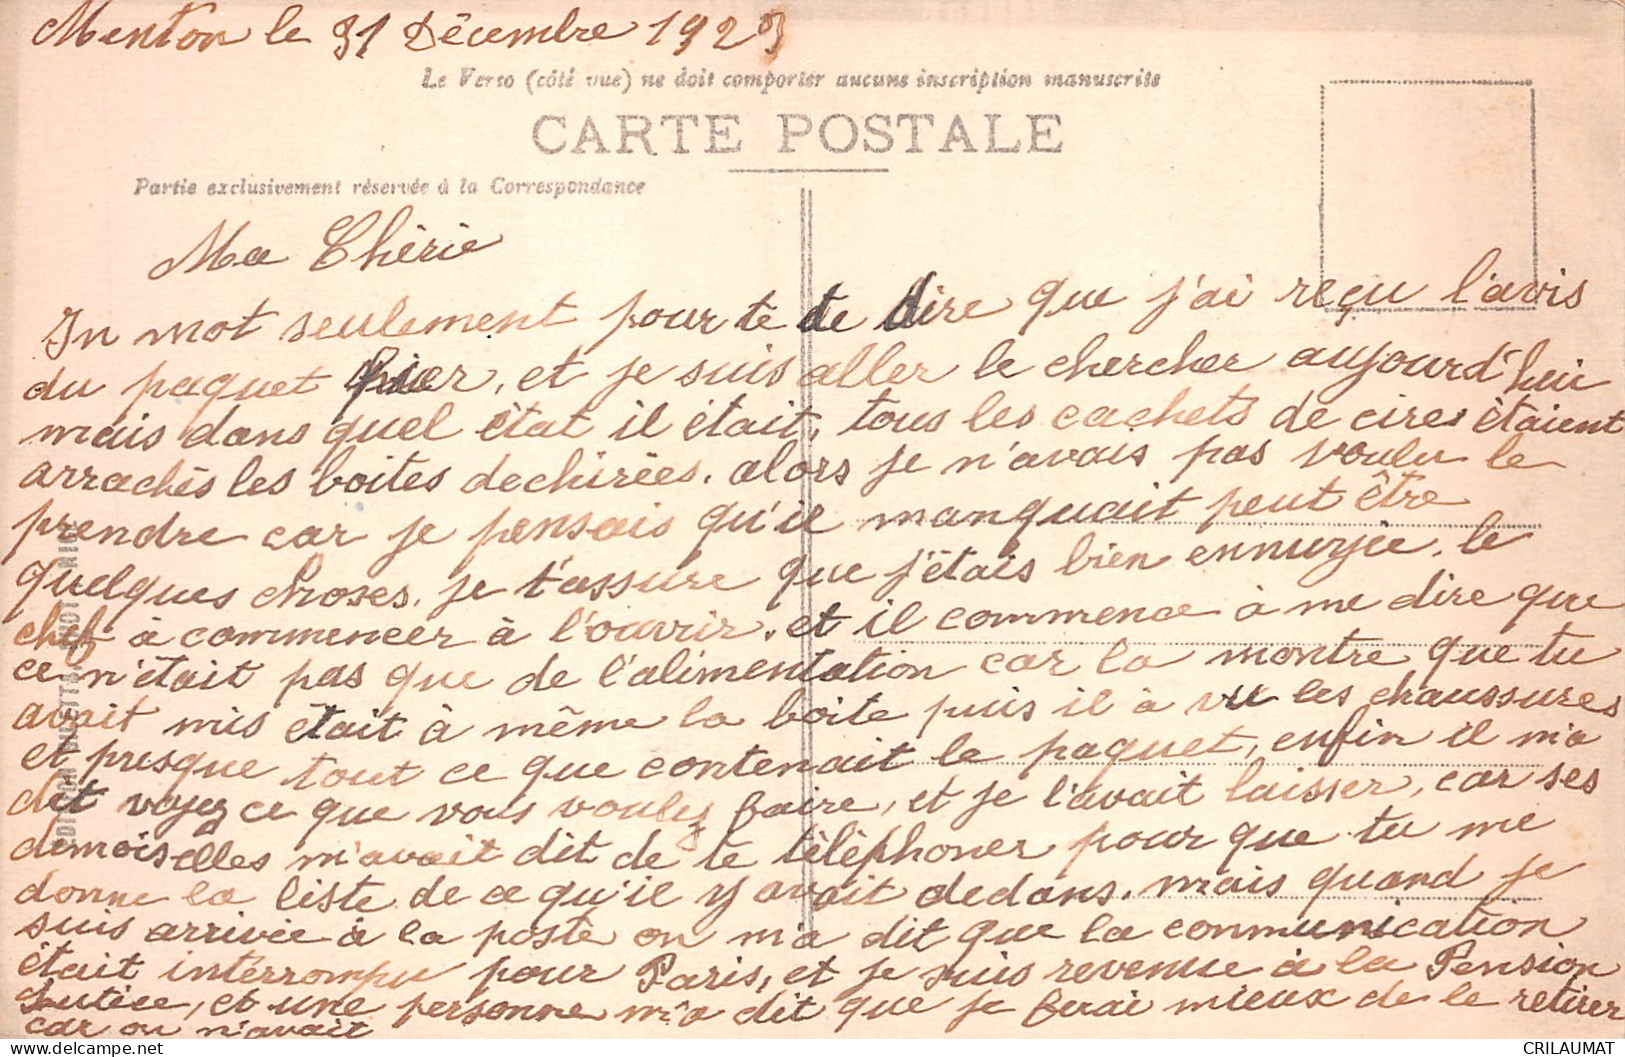 Menton le 31 Décembre 1923
Le Verso (côté vue) ne doit comporter aucune inscription manuscrite
CARTE POSTALE
Partie exclusivement réservée à la Correspondance
Ma Chérie
In mot seulement pour te de dire que j'ai reçu l'avis
du paquet hier, et je suis aller le chercher aujourd'hui
mais dans quel état il était, tous les cachets de cires étaient
arrachés les boites dechirées. alors je n'avais pas voulu le
prendre car je pensais qu'il manquait peut être
quelques choses. je t'assure que j'étais bien ennuyée. le
chef à commencer à l'ouvrir. et il commence à me dire que
ce n'était pas que de l'alimentation car la montre que tu
avait mis était à même la boite puis il à vu les chaussures
et presque tout ce que contenait le paquet, enfin il m'a
dit voyez ce que vous voulez faire, et je l'avait laisser, car ses
demoiselles m'avait dit de te téléphoner pour que tu me
donne la liste de ce qu'il y avait dedans. mais quand je
suis arrivée à la poste on m'a dit que la communication
était intérrompu pour Paris, et je suis revenue à la Pension
et une personne m'a dit que je ferai mieux de le retirer
car on n'avait
CRILAUMAT